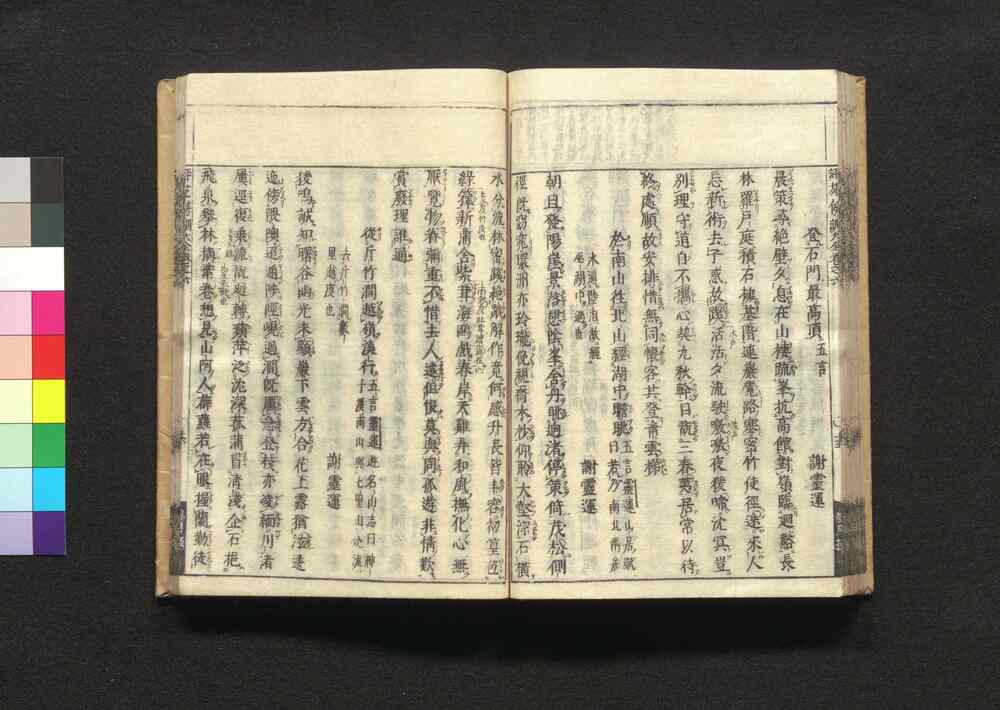 登石門最高頂 五言
謝靈運
晨策尋絶壁夕息在山棲疏峯抗高館對嶺臨迴谿長
林羅戸庭積石擁基階連巖覺路塞密竹使徑迷來人
忘新術去子惑故蹊活活夕流駛噭噭夜猿啼沈冥豈
別理守道自不攜心契九秋幹目翫三春荑居常以待
終處順故安排惜無同懷客共登青雲梯
於南山往北山經湖中瞻眺 五言
謝靈運
朝旦發陽崖景落憩陰峯舍舟眺迥渚停策倚茂松側
徑既窈窕環洲亦玲瓏俛視喬木杪仰聆大壑灇石横
水分流林密蹊絶蹤解作竟何感升長皆丰容初篁苞
緑籜新蒲含紫茸海鷗戲春岸天雞弄和風撫化心無
厭覽物眷彌重不惜去人遠但恨莫與同孤遊非情歎
賞廢理誰通
從斤竹澗越嶺溪行 五言
靈運遊名山志曰神
子溪南山與七里山分流
去斤竹澗數
里越度也
謝靈運
猨鳴誠知曙谷幽光未顯巖下雲方合花上露猶泫逶
迤傍隈隩迢遞陟陘峴過澗既厲急登棧亦凌緬川渚
屢逕復乗流翫迴轉蘋萍泛沈深菰蒲冒清淺企石挹
飛泉攀林摘葉卷想見山阿人薜蘿若在眼握蘭勤徒